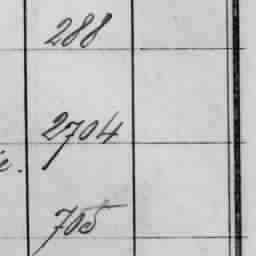 288
2704
705